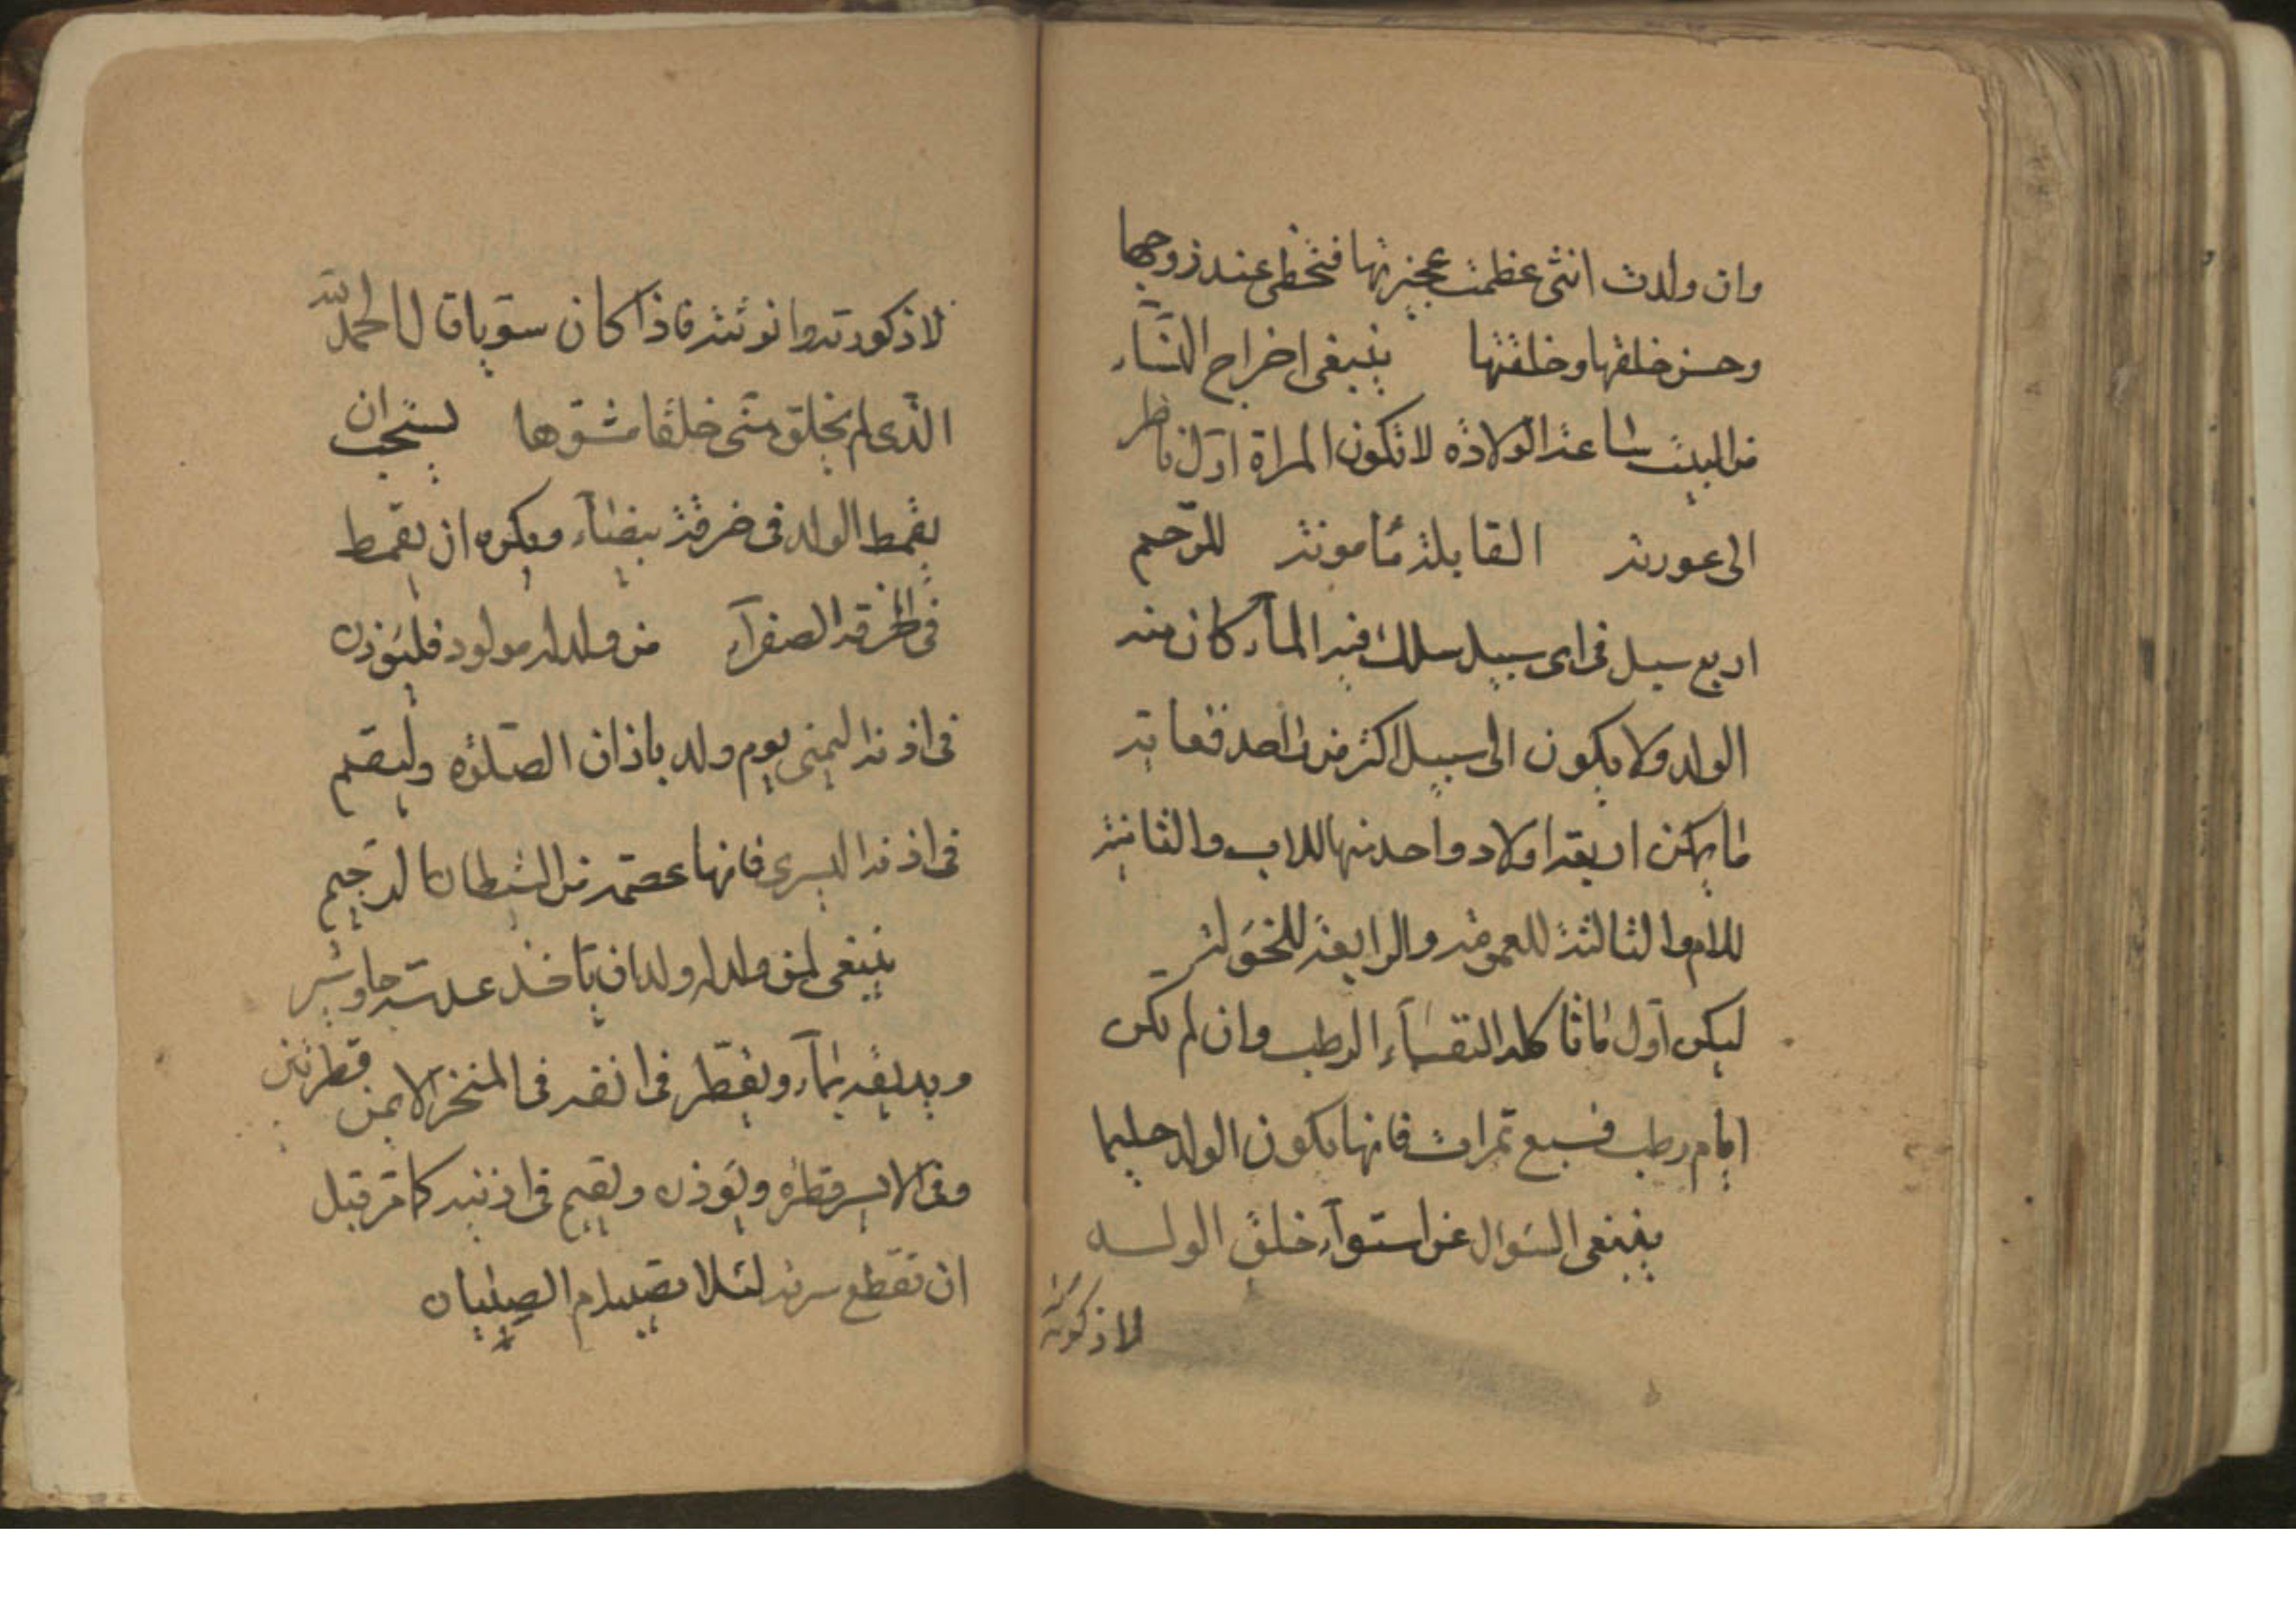 وان ولدت انثى عظمت عجيزتها فتخطى عند زوجها
وحسن خلقها وخلقتها ينبغى اخراج النسآء
من البيت ساعة الولادة لا تكون المراة اول ناظر
الى عورته القابلة مأمونة للرحم
اربع سبل فى اى سبيل سلك فيه المآء كان منه
الولد ولا يكون الى سبيل اكثر من واحد فغاية
ما يمكن اربعة اولاد واحد منها للاب والثانية
للام والثالثة للعمومة والرابعة للخؤلة
ليكن اول ما تاكله النفسآء الرطب وان لم تكن
ايام رطب فسبع تمرات فانها يكون الولد حليما
ينبغى السؤال عن استوآء خلق الولد
لا ذكورته
لا ذكورته وانوثته فاذا كان سويا قال الحمد لله
الذى لم يخلق منى خلقا مشوها يستحب ان
يقمط الولد فى خرقة بيضآء ويكره ان يقمط
فى الخرقة الصفرآء من ولد له مولود فليؤذن
فى اذنه اليمنى يوم ولد باذان الصلوة وليقم
فى اذنه اليسرى فانها عصمة من الشيطان الرجيم
ينبغى لمن ولد له ولد ان يأخذ عدسة جاوشير
ويديفه بمآء ويقطر فى انفه فى المنخر الايمن قطرتين
وفى الايسر قطرة ويؤذن ويقيم فى اذنيه كما مر قبل
ان تقطع سرته لئلا تصيبه ام الصبيان